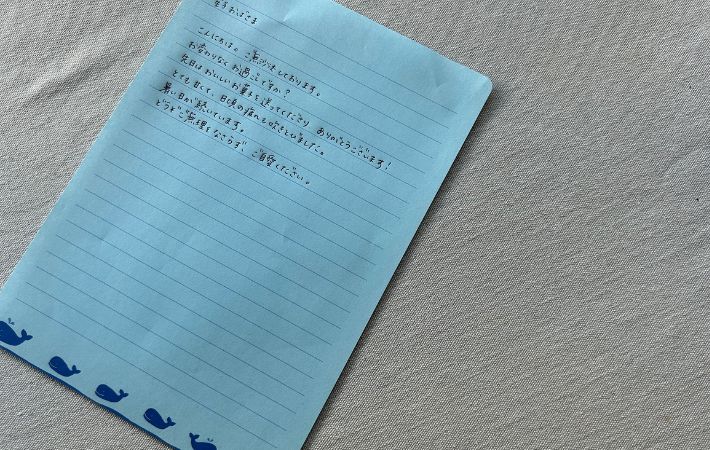 おばさま
こんにちは。ご無沙汰しております。
お変わりなくお過ごしですか?
先日はおいしいお菓子を送ってくださり ありがとうございます!
とても甘くて、日頃の疲れも吹きとびました。
暑い日が続いています。
どうぞご無理をなさらず ご自愛ください。